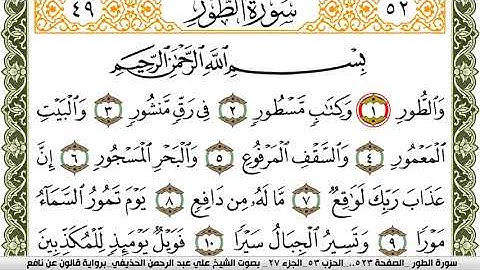 ٤٩ سُورَةُ الطُّورِ ٥٢
بِسْمِ اللَّهِ الرَّحْمَٰنِ الرَّحِيمِ
وَالطُّورِ ١ وَكِتَابٍ مَّسْطُورٍ ٢ فِي رَقٍّ مَّنشُورٍ ٣ وَالْبَيْتِ
الْمَعْمُورِ ٤ وَالسَّقْفِ الْمَرْفُوعِ ٥ وَالْبَحْرِ الْمَسْجُورِ ٦ إِنَّ
عَذَابَ رَبِّكَ لَوَاقِعٌ ٧ مَّا لَهُ مِن دَافِعٍ ٨ يَوْمَ تَمُورُ السَّمَاءُ
مَوْرًا ٩ وَتَسِيرُ الْجِبَالُ سَيْرًا ١٠ فَوَيْلٌ يَوْمَئِذٍ لِّلْمُكَذِّبِينَ
سورة الطور _ الصفحة ٥٢٣... الحزب ٥٣_ الجزء ٢٧ _ بصوت الشيخ علي عبد الرحمن الحذيفي_برواية قالون عن نافع